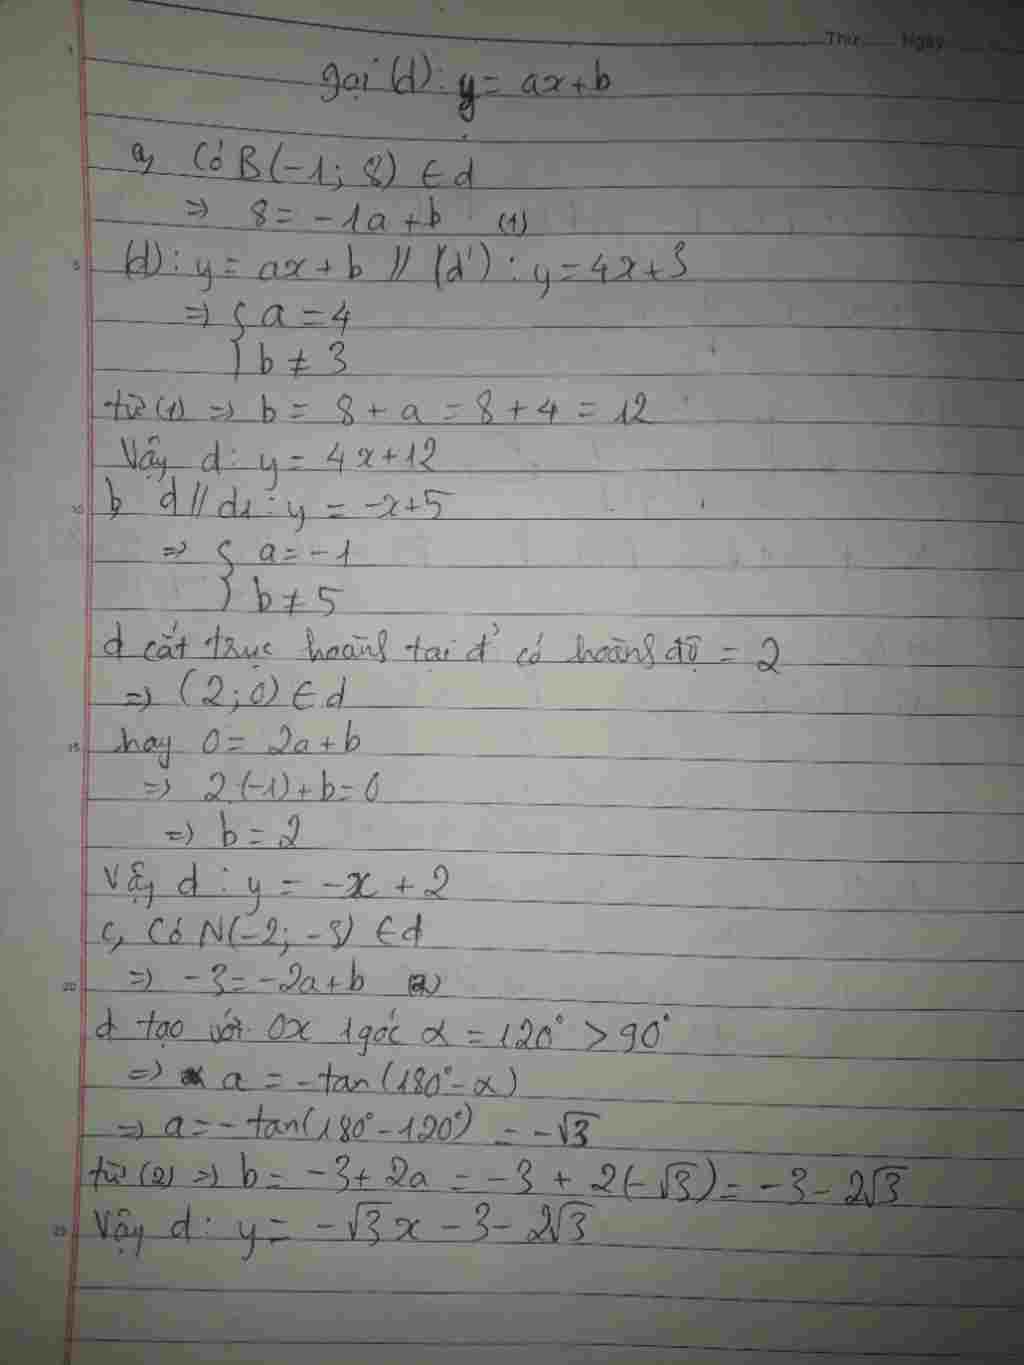 Thứ Ngày
gọi (d): y = ax+b
a, Có B(-1; 8) ∈ d
=> 8 = -1a + b (1)
(d): y = ax + b // (d'): y = 4x+3
=> { a = 4
b ≠ 3
từ (1) => b = 8 + a = 8 + 4 = 12
Vậy d: y = 4x+12
b, d // d1: y = -x+5
=> { a = -1
b ≠ 5
d cắt trục hoành tại đ' có hoành độ = 2
=> (2; 0) ∈ d
hay 0 = 2a + b
=> 2.(-1) + b = 0
=> b = 2
Vậy d: y = -x + 2
c, Có N(-2; -3) ∈ d
=> -3 = -2a + b (2)
d tạo với Ox 1 góc α = 120° > 90°
=> a = -tan(180° - α)
=> a = -tan(180° - 120°) = -√3
từ (2) => b = -3 + 2a = -3 + 2(-√3) = -3 - 2√3
Vậy d: y = -√3x - 3 - 2√3